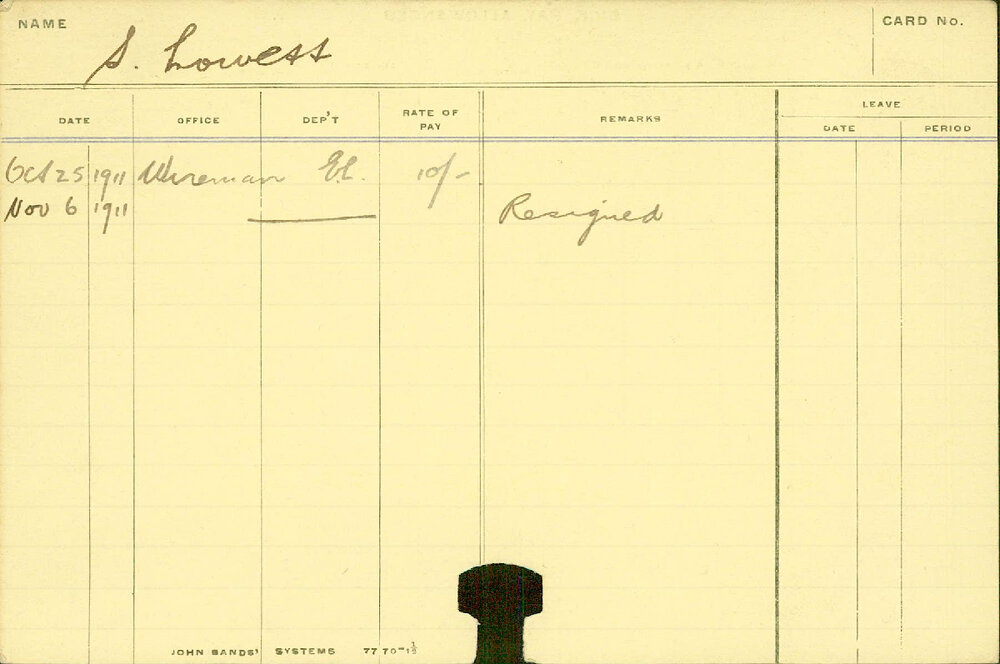 NAME
S. Lowett
CARD No.
DATE OFFICE DEP'T RATE OF PAY REMARKS LEAVE
DATE PERIOD
Oct 25 1911 Wireman EL. 10/-
Nov 6 1911 Resigned
JOHN SANDS' SYSTEMS 77 70-1½